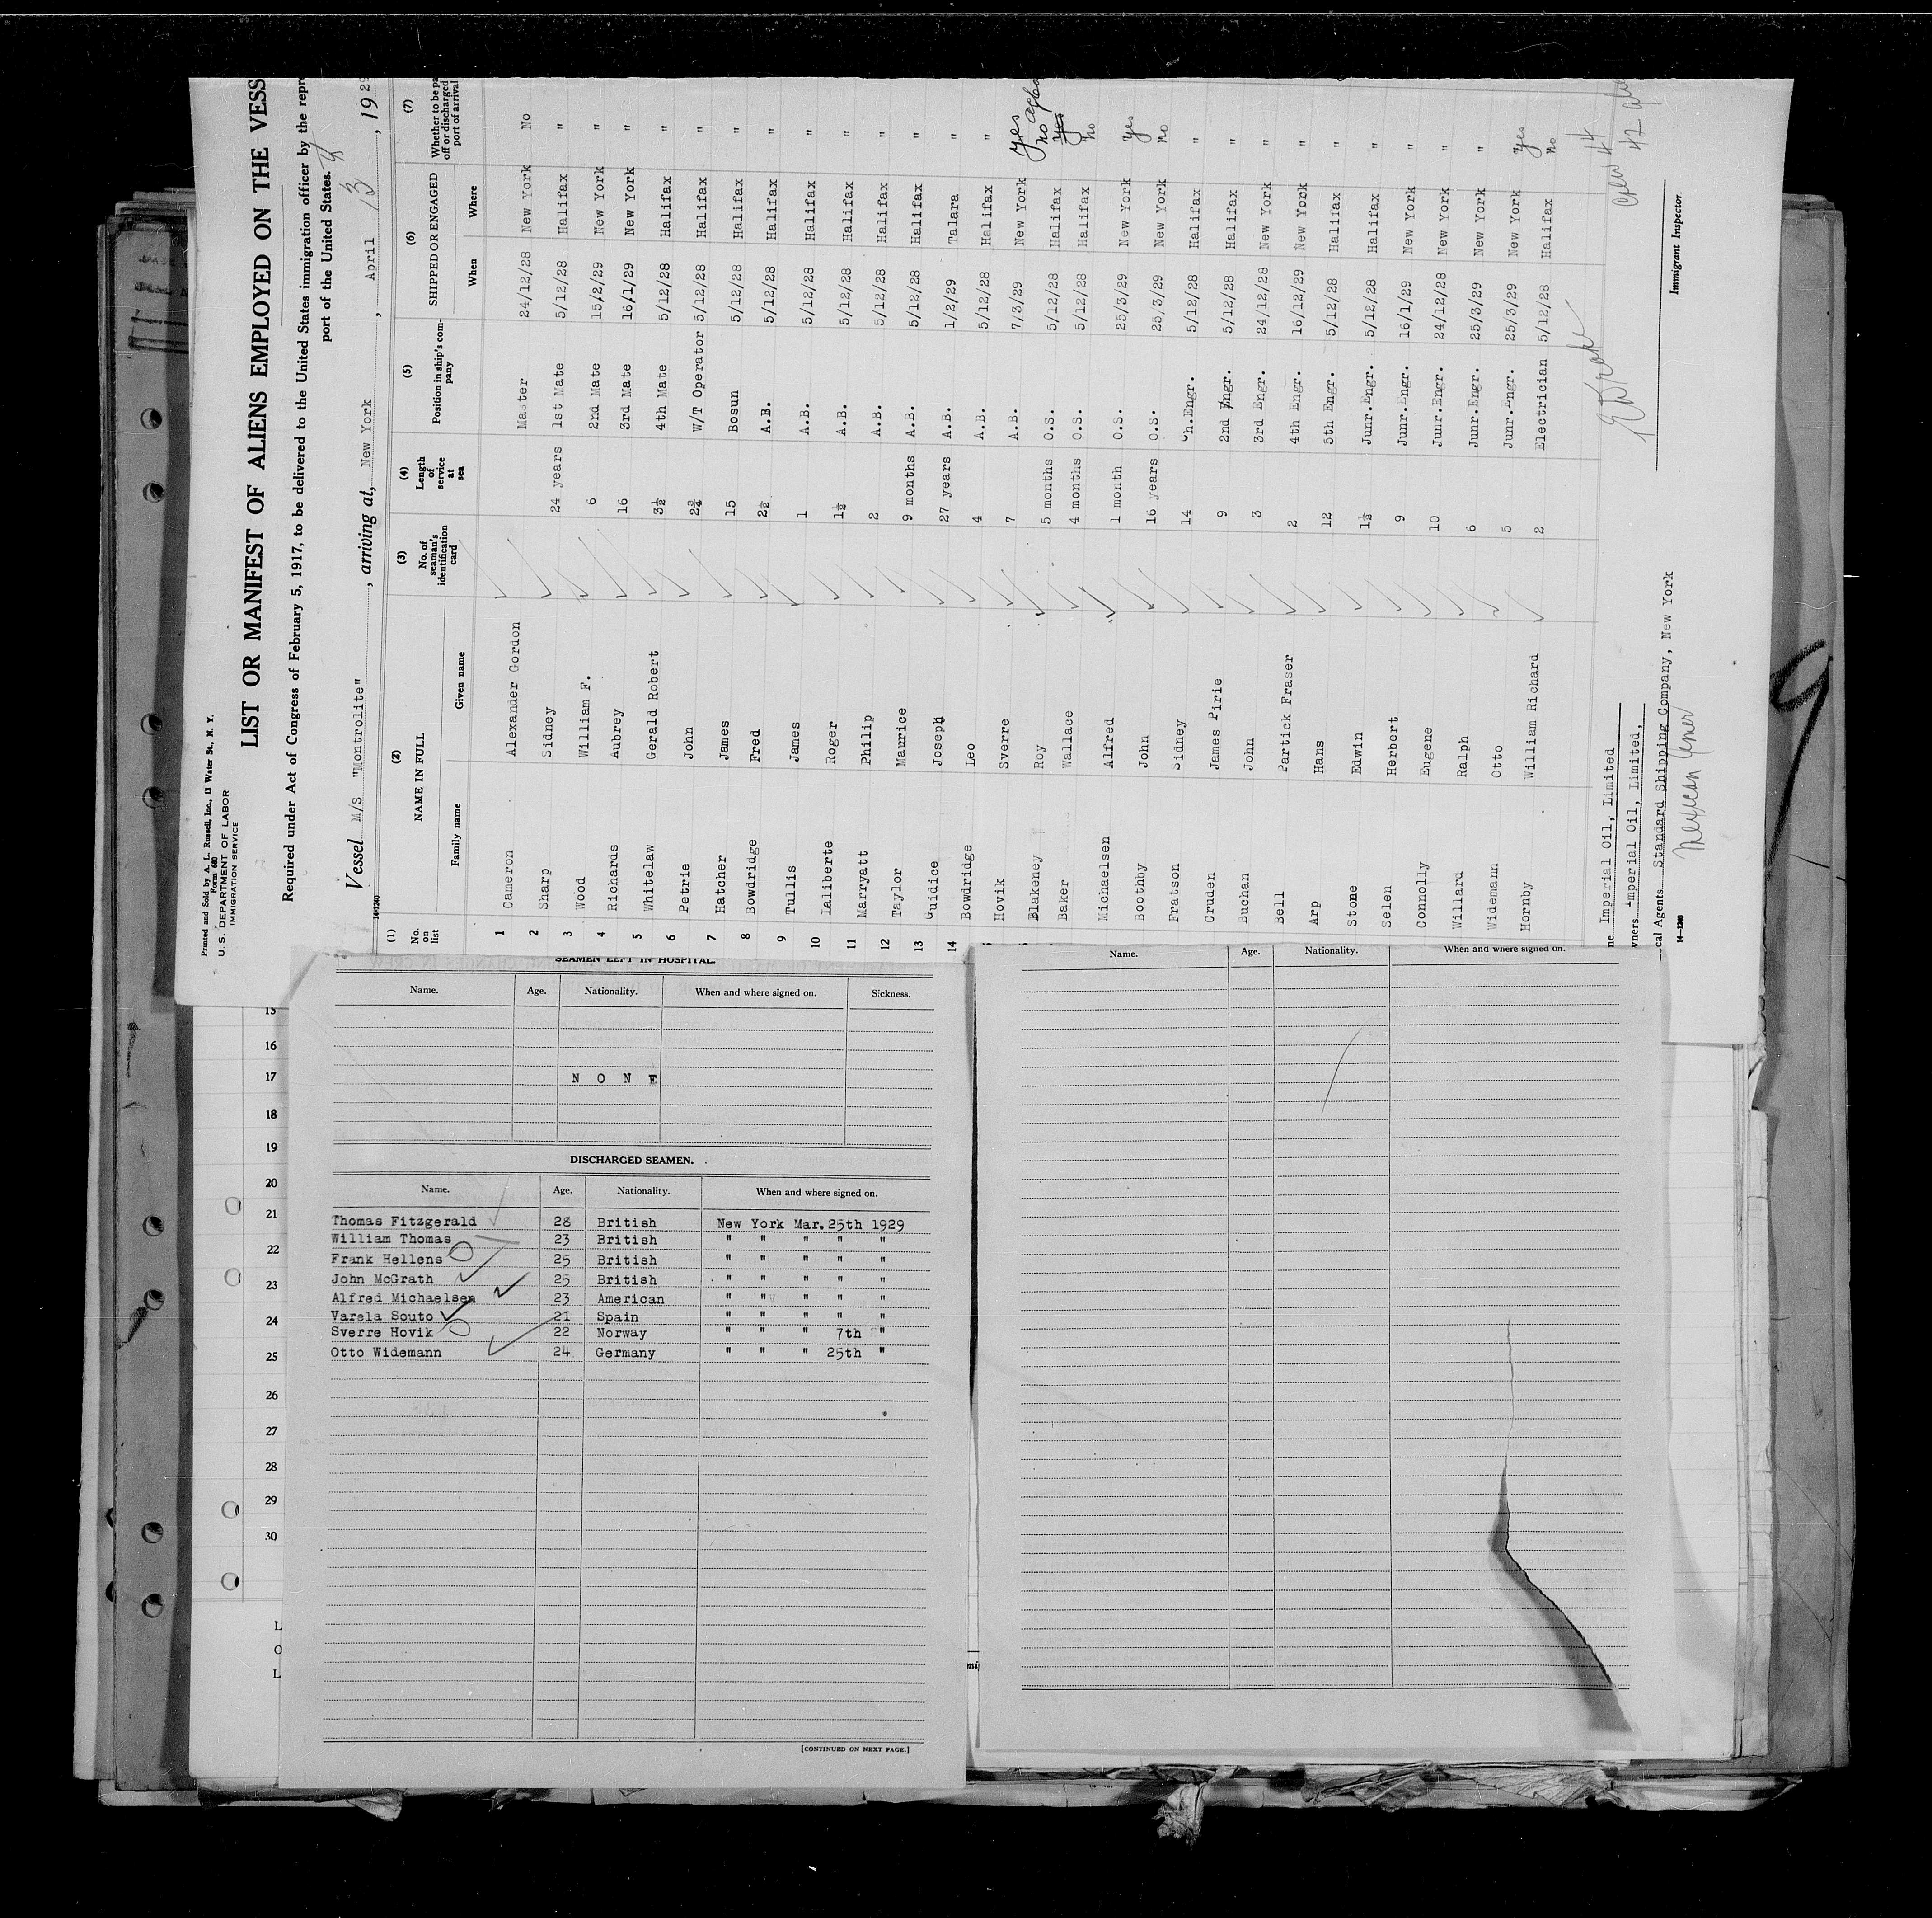 Printed and Sold by A. L. Russell, Inc., 13 Water St., N. Y.
Form 680
U. S. DEPARTMENT OF LABOR
IMMIGRATION SERVICE
LIST OR MANIFEST OF ALIENS EMPLOYED ON THE VESS
Required under Act of Congress of February 5, 1917, to be delivered to the United States immigration officer by the repr
port of the United States.
Vessel M/S "Montrolite" , arriving at, New York , April 13 , 1929
14-1240
(1) No. on list (2) NAME IN FULL Family name Given name (3) No. of seaman's identification card (4) Length of service at sea (5) Position in ship's company (6) SHIPPED OR ENGAGED When Where (7) Whether to be pa off or discharged port of arrival
1 Cameron Alexander Gordon Master 24/12/28 New York No
2 Sharp Sidney 24 years 1st Mate 5/12/28 Halifax "
3 Wood William F. 6 2nd Mate 15/2/29 New York "
4 Richards Aubrey 16 3rd Mate 16/1/29 New York "
5 Whitelaw Gerald Robert 3½ 4th Mate 5/12/28 Halifax "
6 Petrie John 2¾ W/T Operator 5/12/28 Halifax "
7 Hatcher James 15 Bosun 5/12/28 Halifax "
8 Bowdridge Fred 2½ A.B. 5/12/28 Halifax "
9 Tullis James 1 A.B. 5/12/28 Halifax "
10 Laliberte Roger 1½ A.B. 5/12/28 Halifax "
11 Marryatt Philip 2 A.B. 5/12/28 Halifax "
12 Taylor Maurice 9 months A.B. 5/12/28 Halifax "
13 Guidice Joseph 27 years A.B. 1/2/29 Talara "
14 Bowdridge Leo 4 A.B. 5/12/28 Halifax "
Hovik Sverre 7 A.B. 7/3/29 New York Yes
Blakeney Roy 5 months O.S. 5/12/28 Halifax no
Baker Wallace 4 months O.S. 5/12/28 Halifax yes no
Michaelsen Alfred 1 month O.S. 25/3/29 New York Yes
Boothby John 16 years O.S. 25/3/29 New York no
Fratson Sidney 14 Ch.Engr. 5/12/28 Halifax "
Cruden James Pirie 9 2nd Engr. 5/12/28 Halifax "
Buchan John 3 3rd Engr. 24/12/28 New York "
Bell Partick Fraser 2 4th Engr. 16/12/29 New York "
Arp Hans 12 5th Engr. 5/12/28 Halifax "
Stone Edwin 1½ Junr.Engr. 5/12/28 Halifax "
Selen Herbert 9 Junr.Engr. 16/1/29 New York "
Connolly Eugene 10 Junr.Engr. 24/12/28 New York "
Willard Ralph 6 Junr.Engr. 25/3/29 New York "
Widemann Otto 5 Junr.Engr. 25/3/29 New York Yes
Hornby William Richard 2 Electrician 5/12/28 Halifax no
Crew 44
42
ne Imperial Oil, Limited
wners Imperial Oil, Limited,
cal Agents Standard Shipping Company, New York
Immigrant Inspector.
14-1240
15
16
17
18
19
20
21
22
23
24
25
26
27
28
29
30
L
O
L
SEAMEN LEFT IN HOSPITAL.
Name. Age. Nationality. When and where signed on. Sickness.
N O N E
DISCHARGED SEAMEN.
Name. Age. Nationality. When and where signed on.
Thomas Fitzgerald 28 British New York Mar. 25th 1929
William Thomas 23 British " " " " "
Frank Hellens 25 British " " " " "
John McGrath 25 British " " " " "
Alfred Michaelsen 23 American " " " " "
Varela Souto 21 Spain " " " " "
Sverre Hovik 22 Norway " " " 7th "
Otto Widemann 24 Germany " " " 25th "
[CONTINUED ON NEXT PAGE.]
Name. Age. Nationality. When and where signed on.